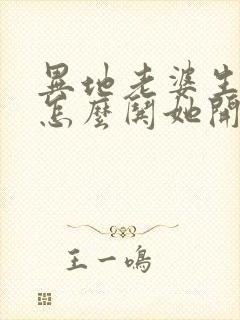 異地老婆生
怎麼鬨她開
王一鳴